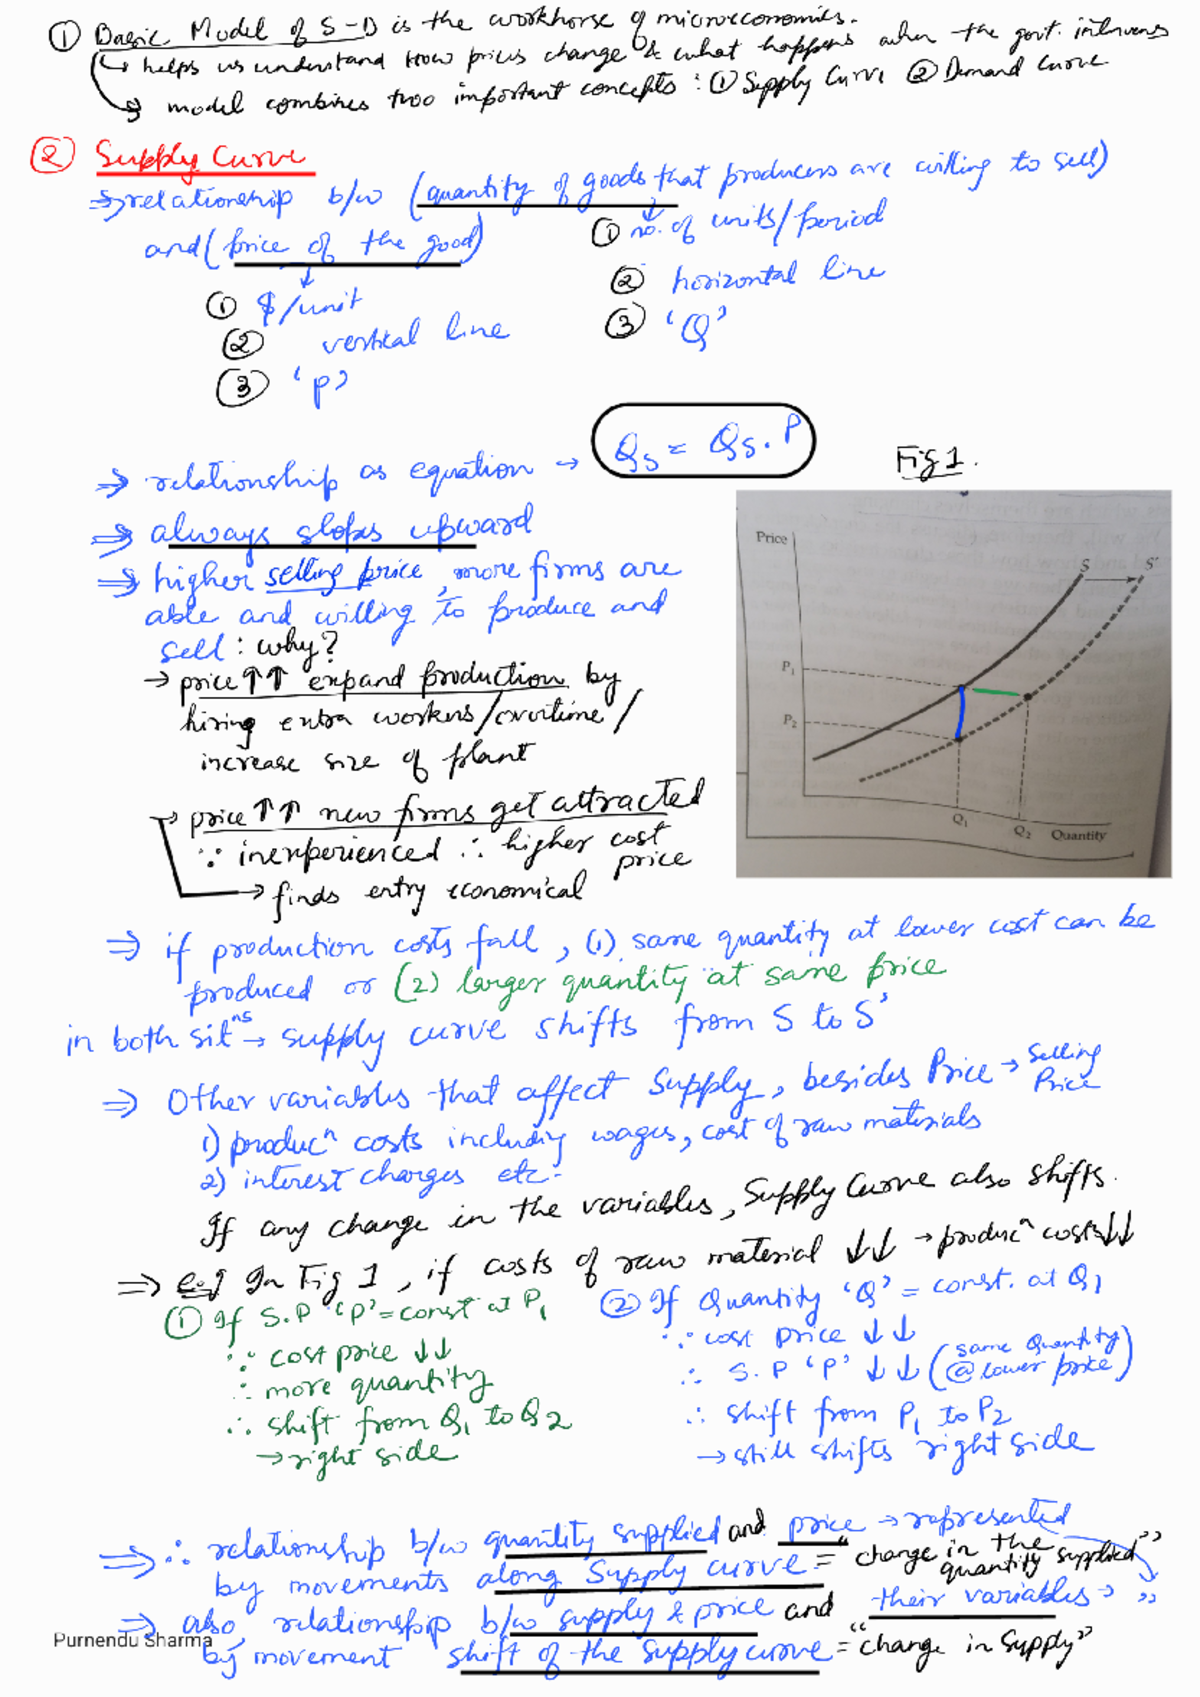 ① Basic Model of S-D is the workhorse of microeconomics.
↳ helps us understand how prices change & what happens when the govt. intervens
→ model combines two important concepts : ① Supply Curve ② Demand Curve
② Supply Curve
⇒ relationship b/w (quantity of goods that producers are willing to sell)
and (price of the good)
① no. of units/period
② horizontal line
③ 'Q'
① $/unit
② vertical line
③ 'P'
⇒ relationship as equation → Qs = Qs . P
Fig 1.
⇒ always slopes upward
⇒ higher selling price, more firms are
able and willing to produce and
sell : why?
→ price ↑↑ expand production by
hiring extra workers/overtime/
increase size of plant
→ price ↑↑ new firms get attracted
∵ inexperienced ∴ higher cost
price
→ finds entry economical
Price
S
S'
P₁
P₂
Q₁
Q₂
Quantity
⇒ if production costs fall, (1) same quantity at lower cost can be
produced or (2) larger quantity at same price
in both sitⁿˢ → supply curve shifts from S to S'
⇒ Other variables that affect Supply, besides Price → Selling
Price
1) producⁿ costs including wages, cost of raw materials
2) interest charges etc.
If any change in the variables, Supply Curve also shifts.
⇒ e.g In Fig 1, if costs of raw material ↓↓ → producⁿ costs ↓↓
① If S.P 'P' = const at P₁
∵ cost price ↓↓
∴ more quantity
∴ shift from Q₁ to Q2
→ right side
② If Quantity 'Q' = const. at Q₁
∵ cost price ↓↓
∴ S.P 'P' ↓↓ (same Quantity
@ lower price)
∴ shift from P₁ to P2
→ still shifts right side
⇒ ∴ relationship b/w quantity supplied and price → represented
by movements along Supply curve = "change in the
quantity supplied"
⇒ also relationship b/w supply & price and their variables → "
by movement shift of the supply curve = "change in Supply"
Purnendu Sharma